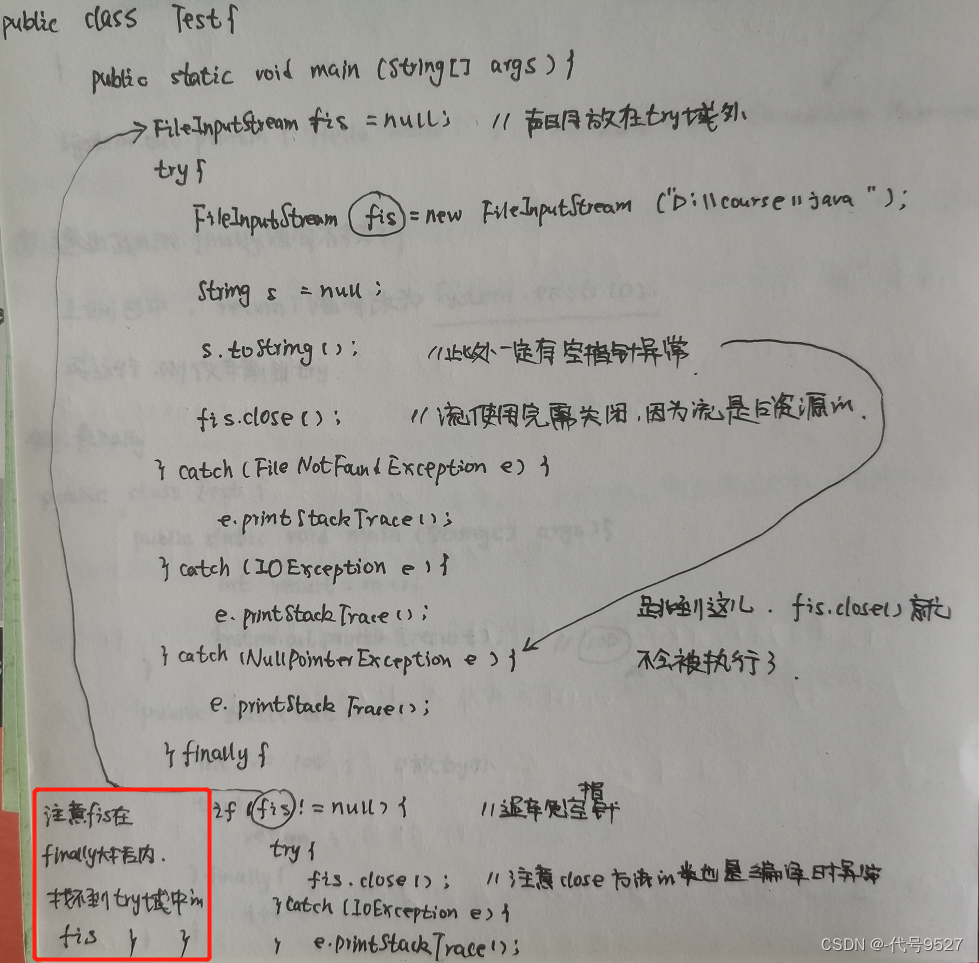 public class Test{
public static void main (String[] args) {
FileInputStream fis = null; // 声明放在try域外
try{
FileInputStream fis = new FileInputStream ("D:\\course\\java");
String s = null;
s.toString(); //此处一定有空指针异常.
fis.close(); //流使用完需关闭,因为流是占资源的.
} catch (FileNotFoundException e) {
e.printStackTrace();
} catch (IOException e) {
e.printStackTrace(); 跑到这儿. fis.close()就
} catch (NullPointerException e) { 不会被执行了.
e.printStackTrace();
} finally {
if (fis != null) { //避免空指针
try {
fis.close(); //注意close方法的异常也是编译时异常
} catch (IOException e) {
} e.printStackTrace();
注意fis在
finally大括号内.
找不到try域中的
fis } }
CSDN @-代号9527